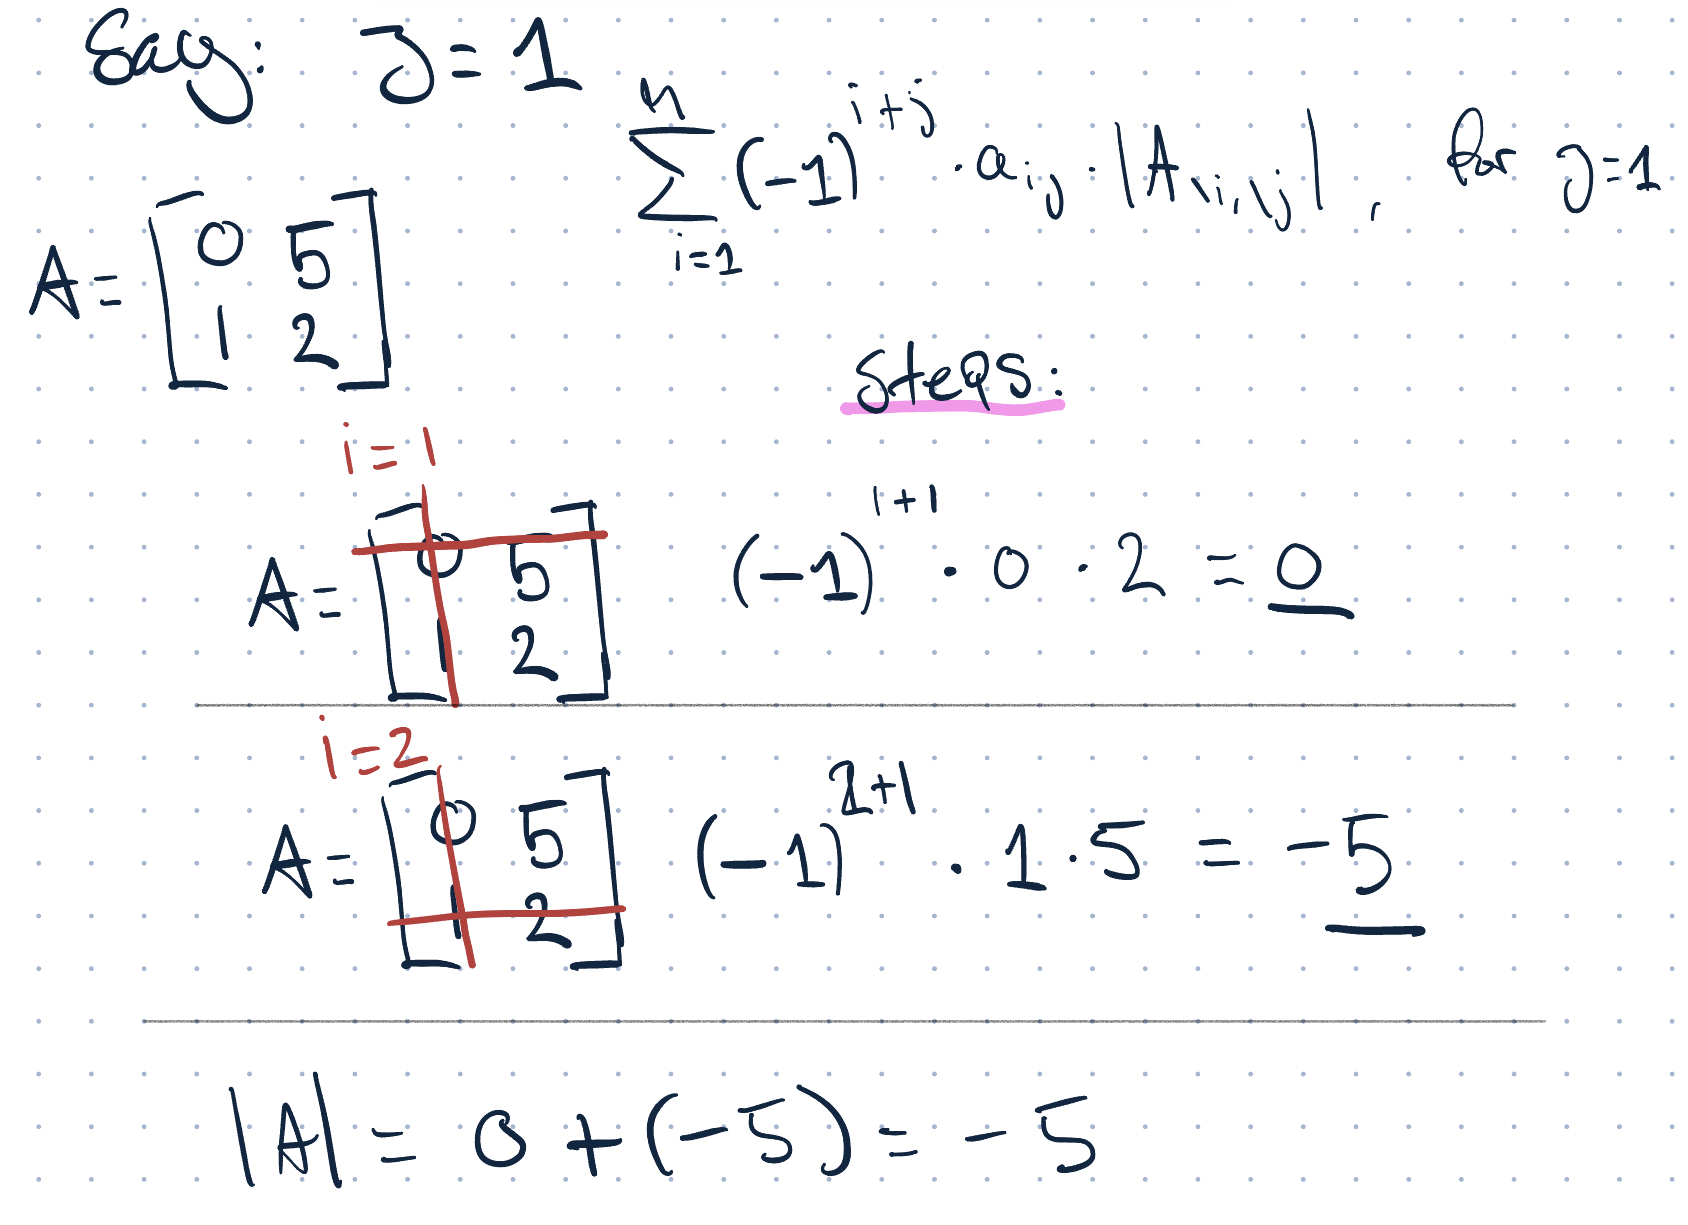 Say: J = 1
n
∑ (-1)^{i+j} · a_{ij} · |A_{\i,\j}| , for J=1
i=1
A = [0 5
1 2]
Steps:
i = 1
A = [0 5
1 2] (-1)^{1+1} · 0 · 2 = 0
i = 2
A = [0 5
1 2] (-1)^{2+1} · 1 · 5 = -5
|A| = 0 + (-5) = -5